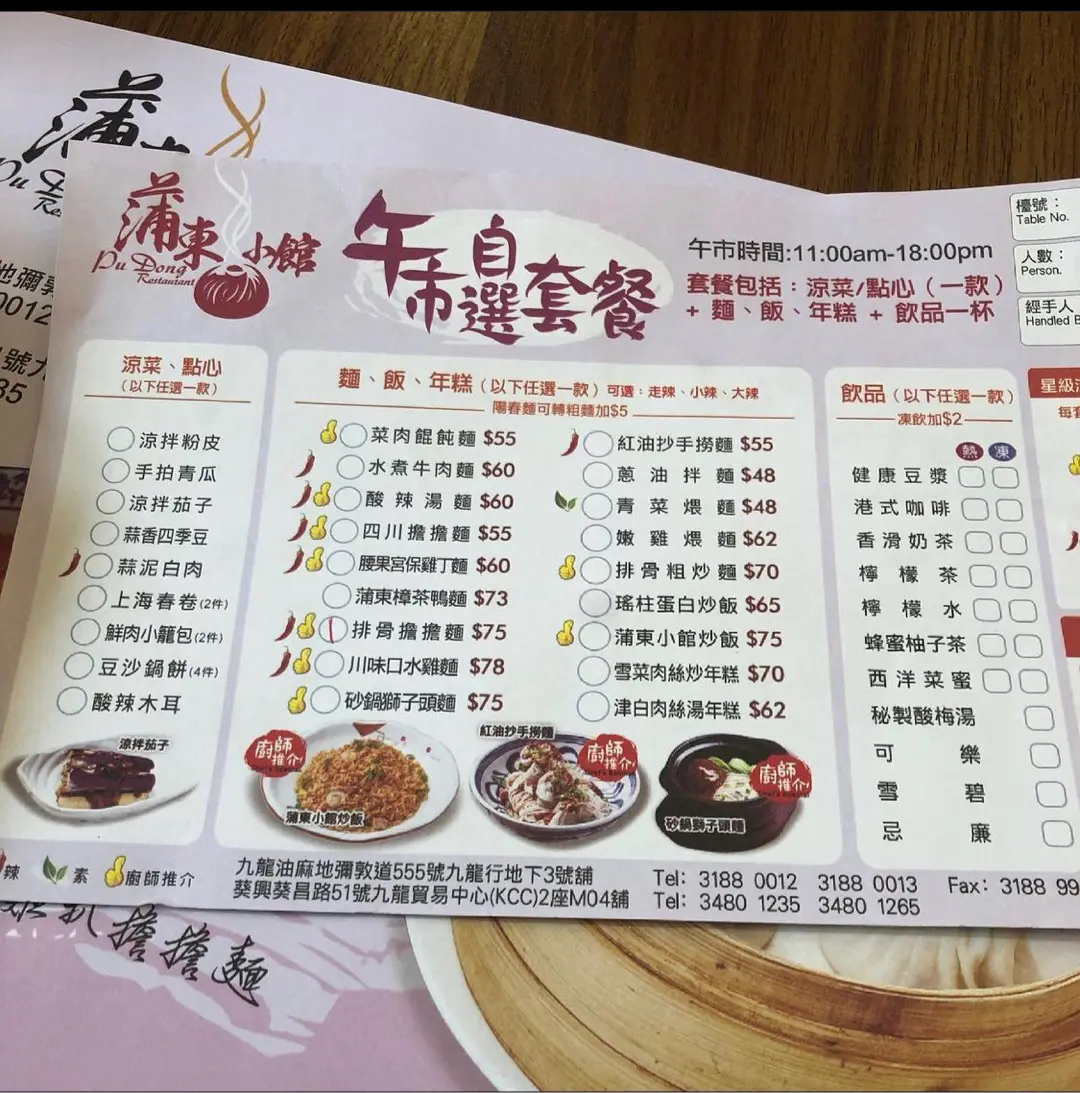 蒲
Pu D
Re
地彌敦
0012
號九
35
蒲東小館
Pu Dong
Restaurant
午市自選套餐
午市時間:11:00am-18:00pm
套餐包括：涼菜/點心（一款）
+ 麵、飯、年糕 + 飲品一杯
檯號：
Table No.
人數：
Person.
經手人
Handled B
涼菜、點心
（以下任選一款）
涼拌粉皮
手拍青瓜
涼拌茄子
蒜香四季豆
蒜泥白肉
上海春卷(2件)
鮮肉小籠包(2件)
豆沙鍋餅(4件)
酸辣木耳
涼拌茄子
麵、飯、年糕（以下任選一款）可選：走辣、小辣、大辣
陽春麵可轉粗麵加$5
菜肉餛飩麵 $55
水煮牛肉麵 $60
酸辣湯麵 $60
四川擔擔麵 $55
腰果宮保雞丁麵 $60
蒲東樟茶鴨麵 $73
排骨擔擔麵 $75
川味口水雞麵 $78
砂鍋獅子頭麵 $75
紅油抄手撈麵 $55
蔥油拌麵 $48
青菜煨麵 $48
嫩雞煨麵 $62
排骨粗炒麵 $70
瑤柱蛋白炒飯 $65
蒲東小館炒飯 $75
雪菜肉絲炒年糕 $70
津白肉絲湯年糕 $62
廚師推介
Chef's Special
蒲東小館炒飯
紅油抄手撈麵
廚師推介
Chef's Special
廚師推介
Chef's Special
砂鍋獅子頭麵
飲品（以下任選一款）
凍飲加$2
熱 凍
健康豆漿
港式咖啡
香滑奶茶
檸檬茶
檸檬水
蜂蜜柚子茶
西洋菜蜜
秘製酸梅湯
可樂
雪碧
忌廉
星級
辣 素 廚師推介
九龍油麻地彌敦道555號九龍行地下3號舖
葵興葵昌路51號九龍貿易中心(KCC)2座M04舖
Tel: 3188 0012 3188 0013 Fax: 3188 99
Tel: 3480 1235 3480 1265
擔擔麵